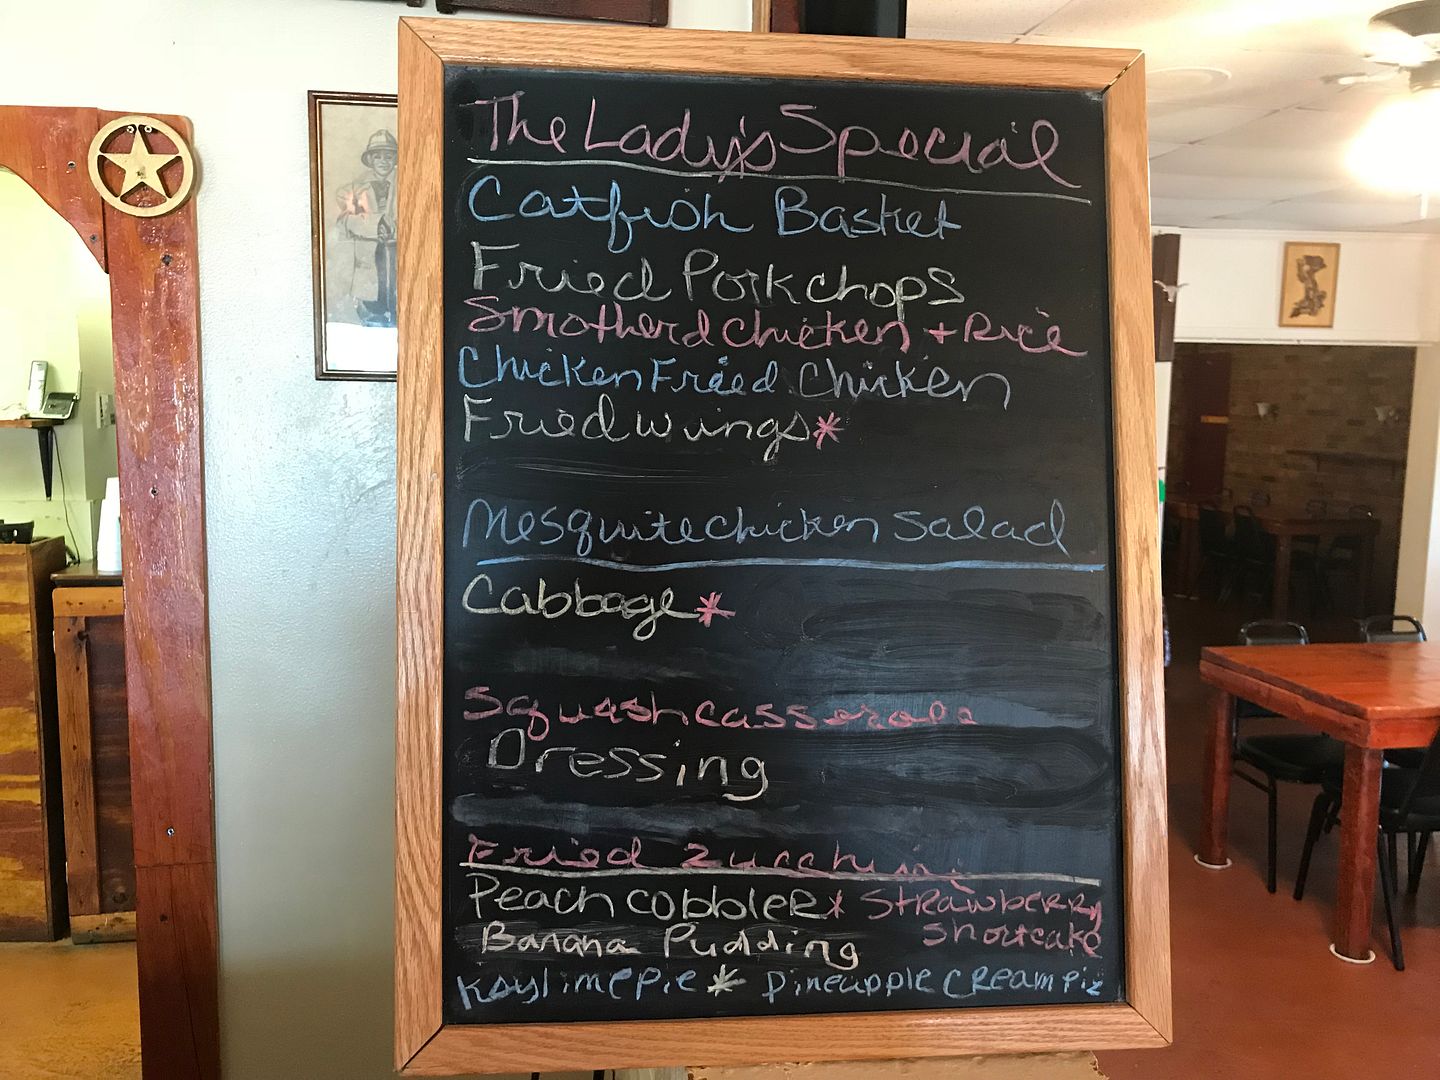 The Lady's Special
Catfish Basket
Fried Porkchops
Smotherd Chicken + Rice
Chicken Fried Chicken
Fried wings*
Mesquite chicken salad
Cabbage*
Squash casserole
Dressing
Fried Zucchini
Peach cobbler * Strawberry
shortcake
Banana Pudding
Keylime pie * Pineapple cream pie